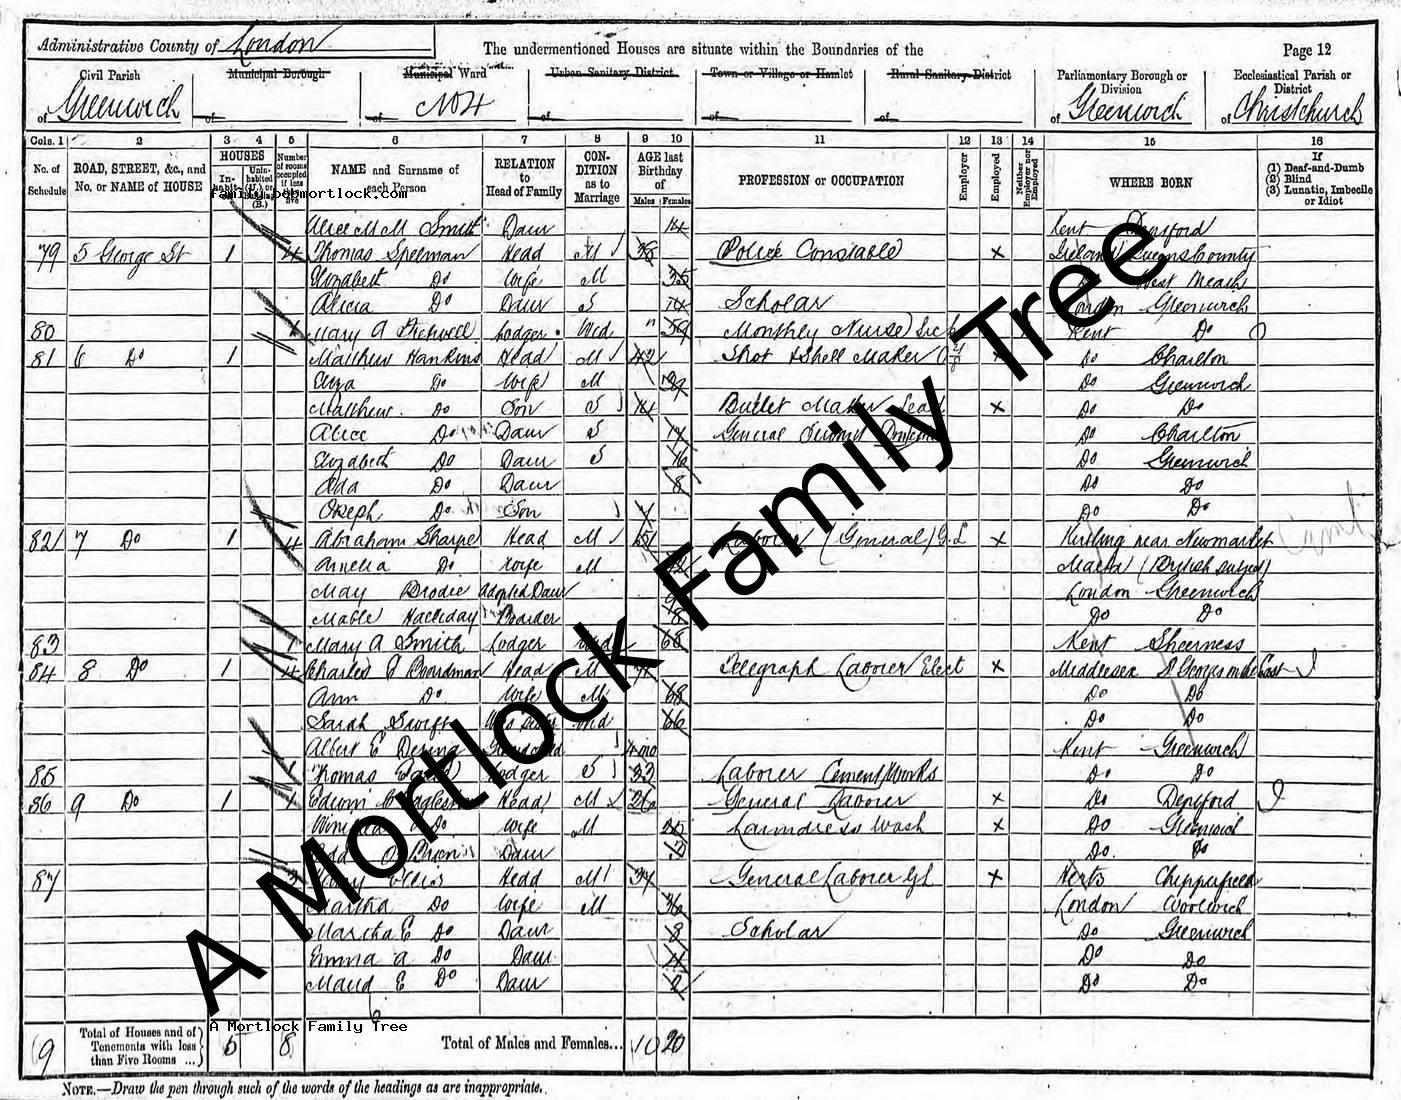 Administrative County of London The undermentioned Houses are situate within the Boundaries of the Page 12
Civil Parish Municipal Borough Municipal Ward Urban Sanitary District Town or Village or Hamlet Rural Sanitary District Parliamentary Borough or Division Ecclesiastical Parish or District
of Greenwich of of No 4 of of of of Greenwich of Christchurch
Cols. 1 2 3 4 5 6 7 8 9 10 11 12 13 14 15 16
No. of Schedule ROAD, STREET, &c., and No. or NAME of HOUSE HOUSES Number of rooms occupied if less than five NAME and Surname of each Person RELATION to Head of Family CONDITION as to Marriage AGE last Birthday of Males Females PROFESSION or OCCUPATION Employer Employed Neither Employer nor Employed WHERE BORN If (1) Deaf-and-Dumb (2) Blind (3) Lunatic, Imbecile or Idiot
family.bobmortlock.com
Alice M M Smith Daur 14 Kent Deptford
79 5 George St 1 4 Thomas Speelman Head M 38 Police Constable x Ireland Queens County
Elizabeth Do Wife M 35 West Meath
Alicia Do Daur S 14 Scholar London Greenwich
80 1 Mary A Lodger Wid 59 Monthly Nurse Kent Do
81 6 Do 1 Matthew Hankins Head M 42 Shot & Shell Maker x Do Charlton
Eliza Do Wife M 39 Do Greenwich
Matthew Do Son S 14 Bullet Maker Lead x Do Do
Alice Do Daur S 17 General Servant Domestic Do Charlton
Elizabeth Do Daur S 16 Do Greenwich
Ada Do Daur 8 Do Do
Joseph Do Son Do Do
82 7 Do 1 4 Abraham Sharpe Head M Laborer (General) G.L x Kirtling near Newmarket
Amelia Do Wife M Malta (British Subject)
May Brodie Adopted Daur London Greenwich
Mable Halliday Boarder 8 Do Do
83 1 Mary A Smith Lodger Wid 68 Kent Sheerness
84 8 Do 1 4 Charles E Boardman Head M Telegraph Laborer Elect x Middlesex St Georges in the East
Ann Do Wife M 68 Do Do
Sarah Swift Wid 66 Do Do
Albert E Grandchild 4 mo Kent Greenwich
85 1 Thomas Lodger S 33 Laborer Cement Works Do Do
86 9 Do 1 Edwin Head M 26 General Laborer x Do Deptford
Do Wife M 25 Laundress Wash x Do Greenwich
O Brien Daur Do Do
87 Ellis Head M 37 General Laborer GL x Herts Chipperfield
Martha Do Wife M 36 London Woolwich
Martha E Do Daur 8 Scholar Do Greenwich
Emma A Do Daur 4 Do Do
Maud E Do Daur 2 Do Do
A Mortlock Family Tree
A Mortlock Family Tree
9 Total of Houses and of Tenements with less than Five Rooms ... 5 8 Total of Males and Females... 10 20
NOTE.—Draw the pen through such of the words of the headings as are inappropriate.